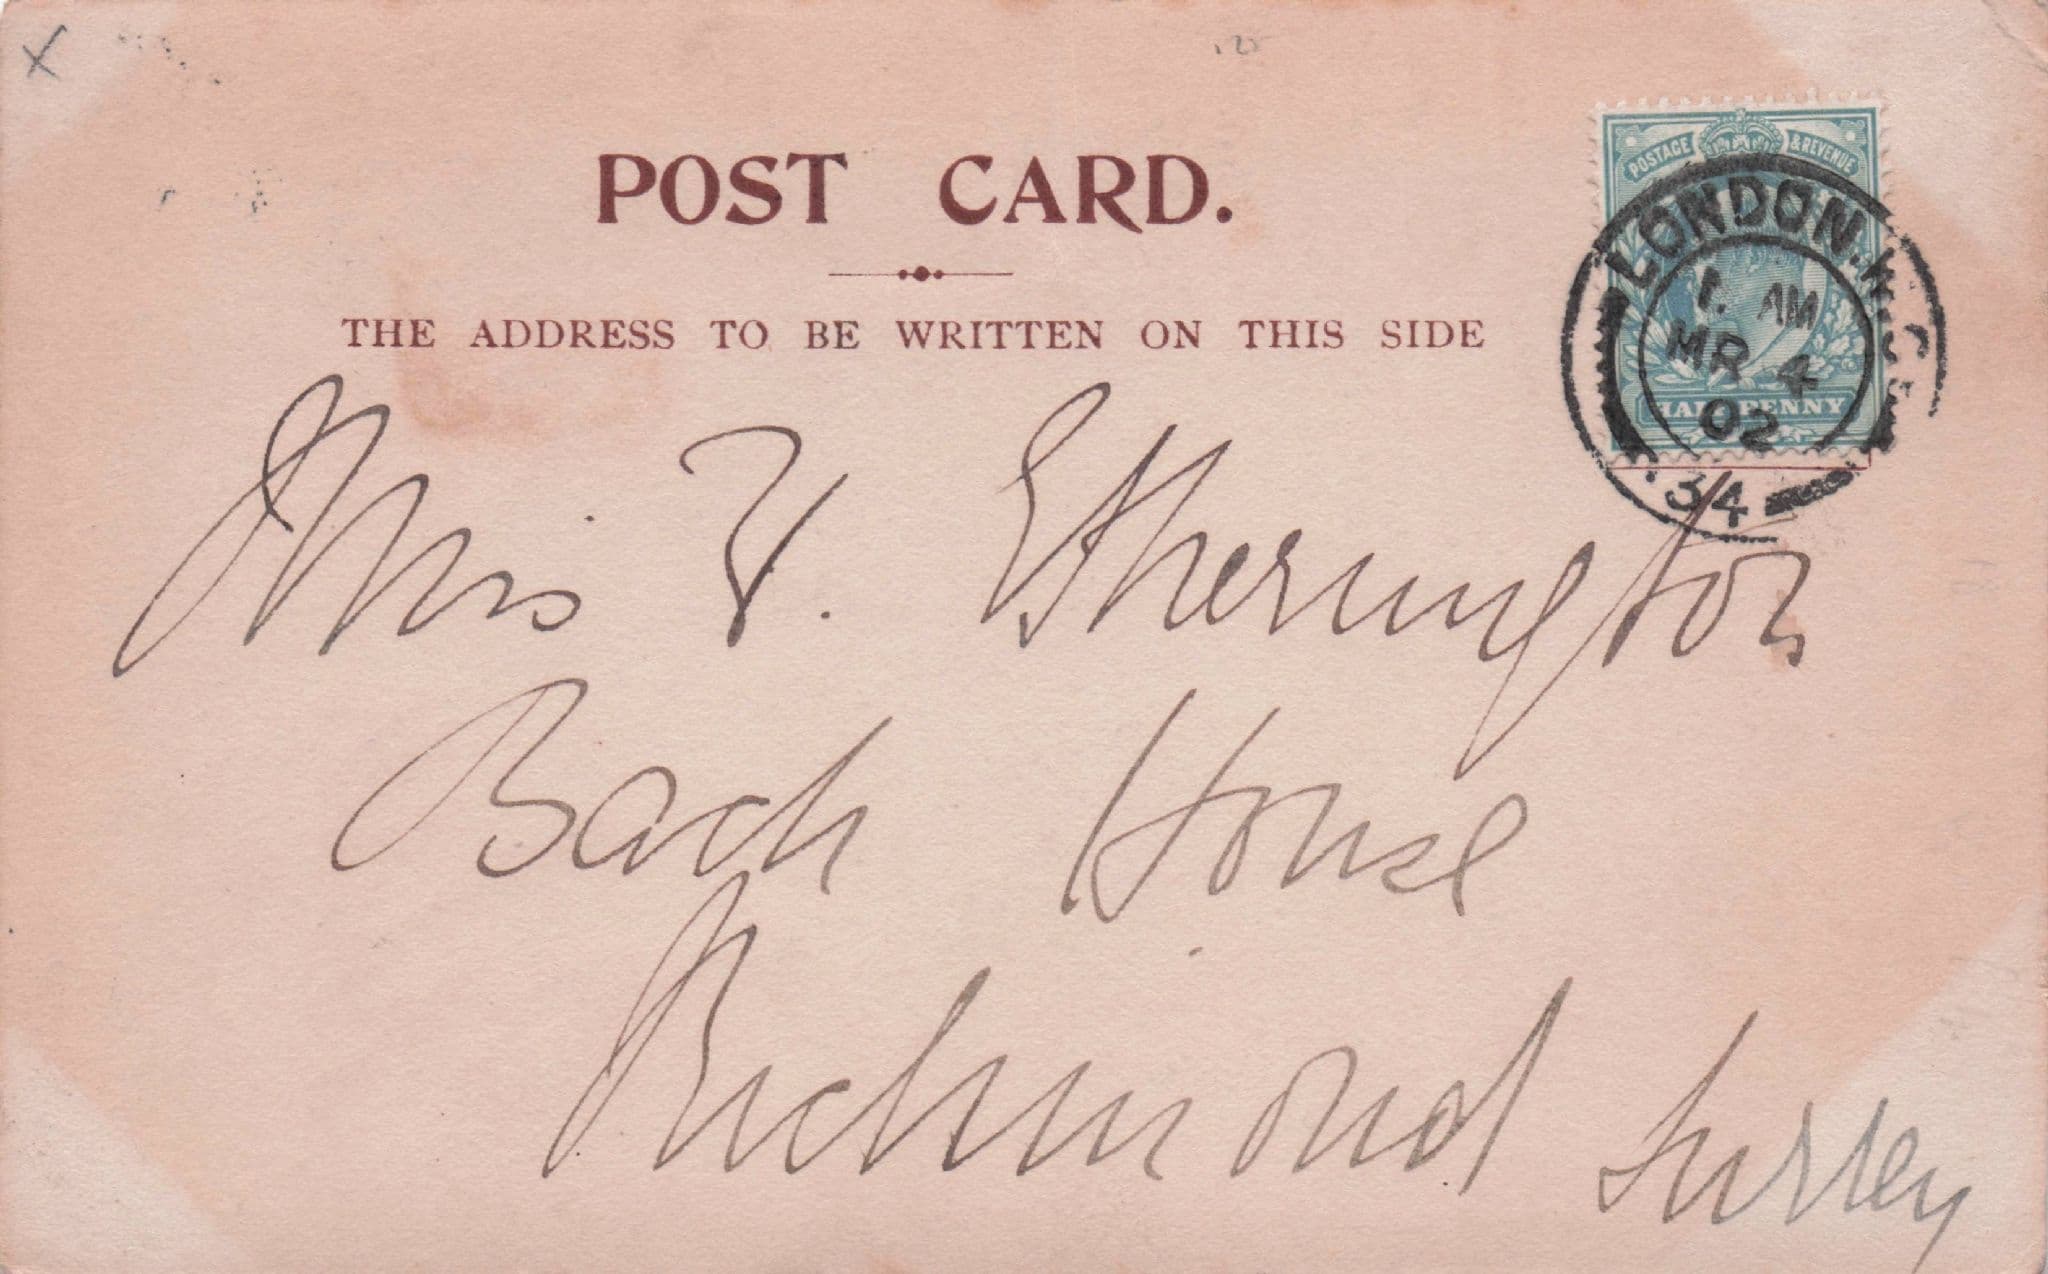 X
POST CARD.
THE ADDRESS TO BE WRITTEN ON THIS SIDE
POSTAGE & REVENUE
HALFPENNY
LONDON. W.C.
1. AM
MR 4
02
34
Miss V. Etherington
Bach House
Richmond Surrey